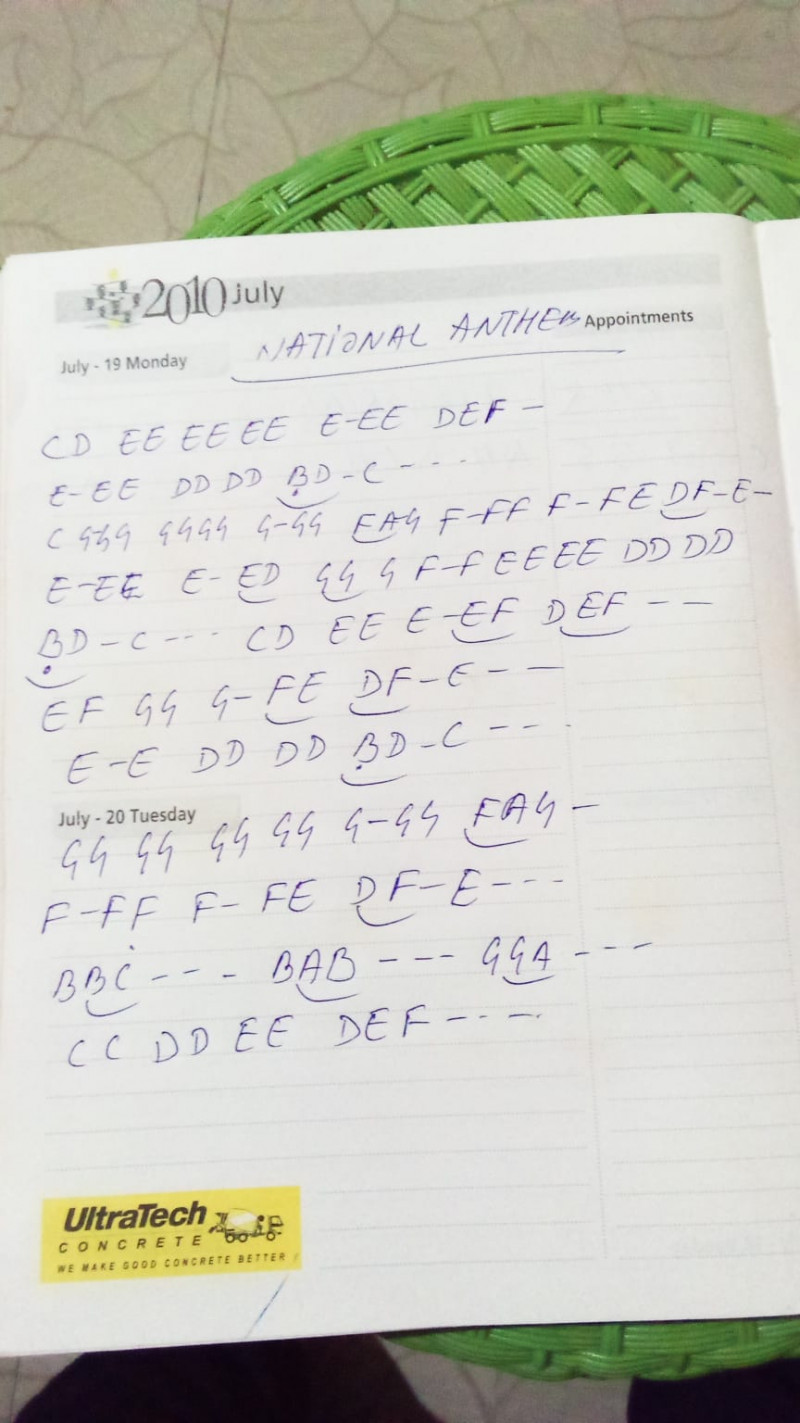 2010 July
NATIONAL ANTHEM Appointments
July - 19 Monday
CD EE EE EE E-EE DEF -
E-EE DD DD ḄD-C - - - -
C GGG GGGG G-GG FAG F-FF F-FE DF-E-
E-EE E-ED GG G F-F EEEE DD DD
ḄD-C - - - - CD EE E-EF DEF - -
EF GG G-FE DF-E - -
E-E DD DD ḄD-C - - -
July - 20 Tuesday
GG GG GG GG G-GG FAG -
F-FF F-FE DF-E - - - -
BBĊ - - - - BAB - - - - GGA - - -
CC DD EE DEF - - - -
UltraTech
CONCRETE
WE MAKE GOOD CONCRETE BETTER